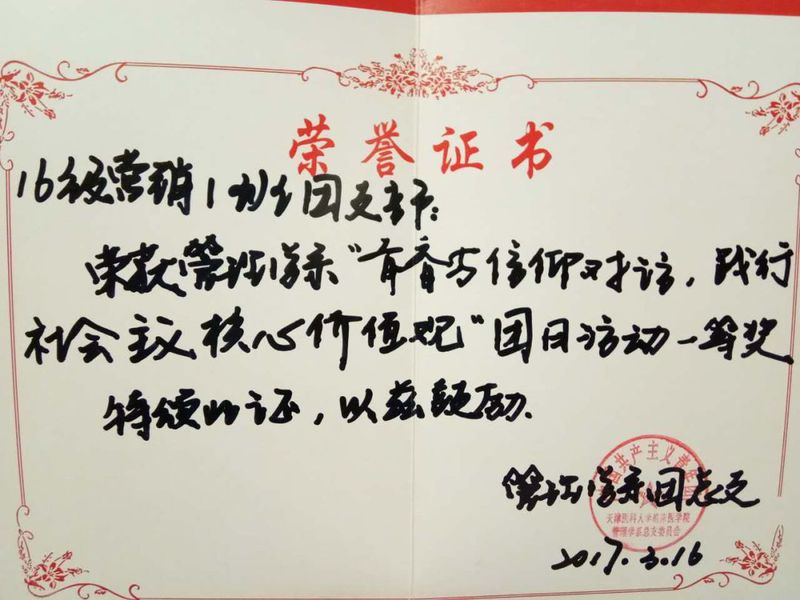 荣誉证书
16级营销1班团支部:
荣获管理学系“青春与信仰对话，践行
社会主义核心价值观”团日活动一等奖
特颁此证，以兹鼓励.
管理学系团总支
中国共产主义青年团
天津医科大学临床医学院
管理学系总支委员会
2017.3.16